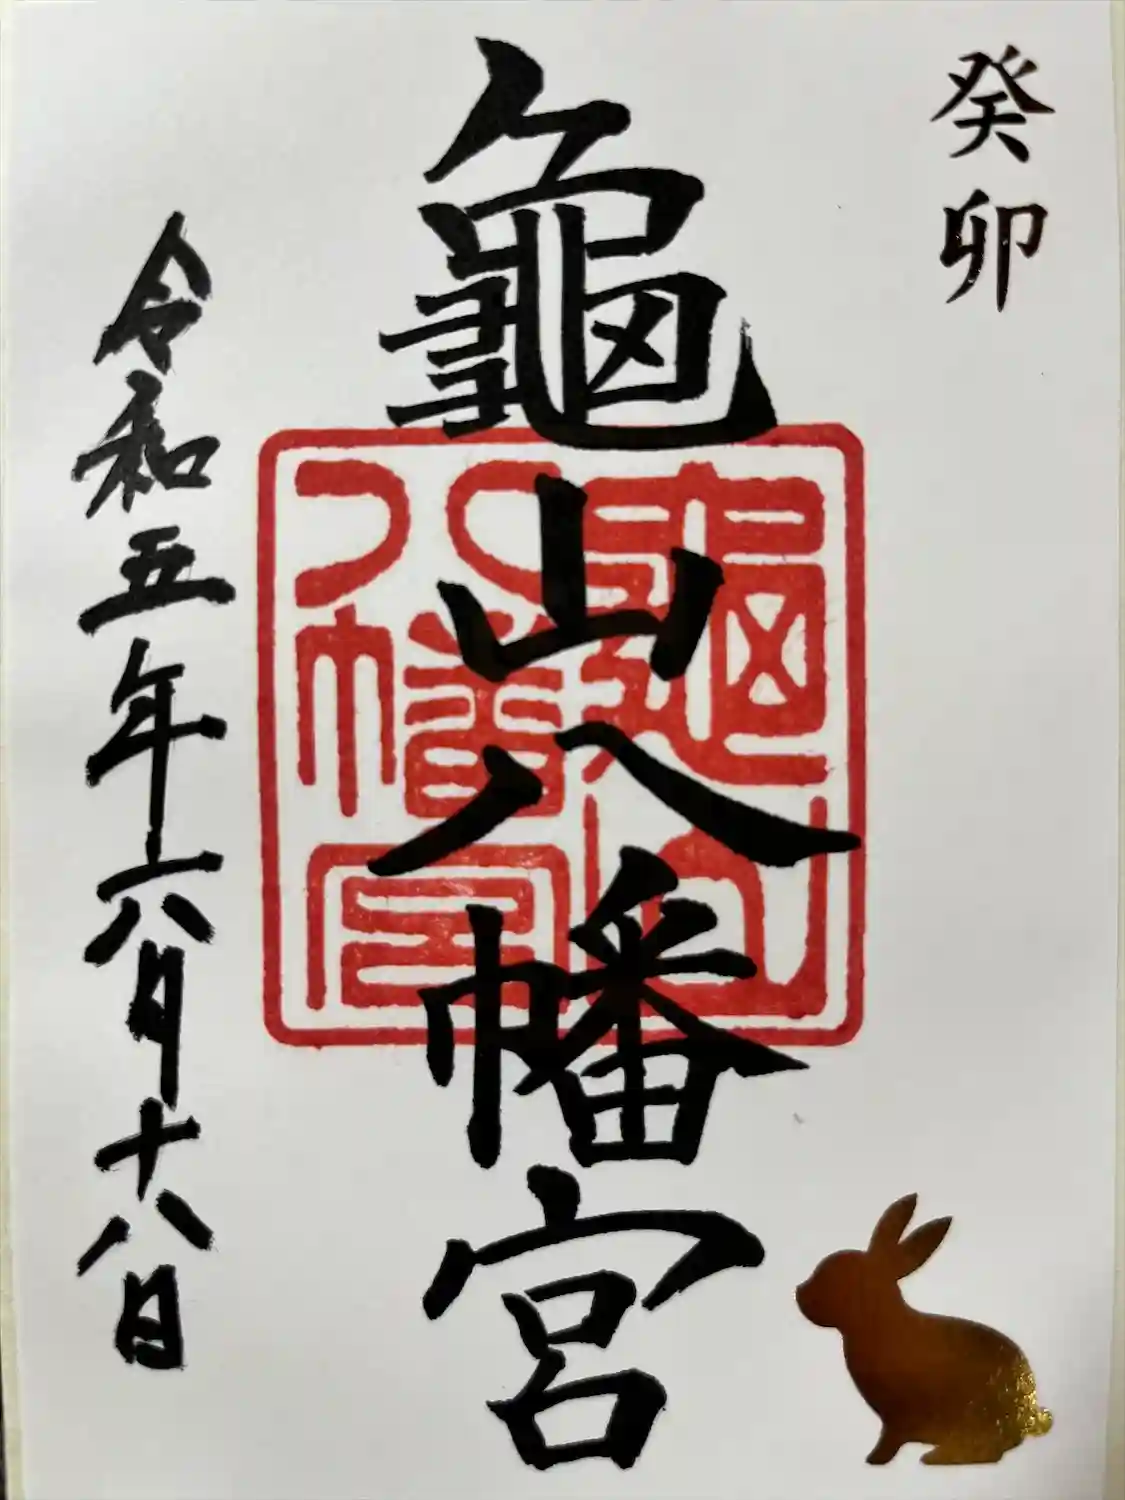 癸卯
龜山八幡宮
令和五年六月十八日
龜山
八幡宮